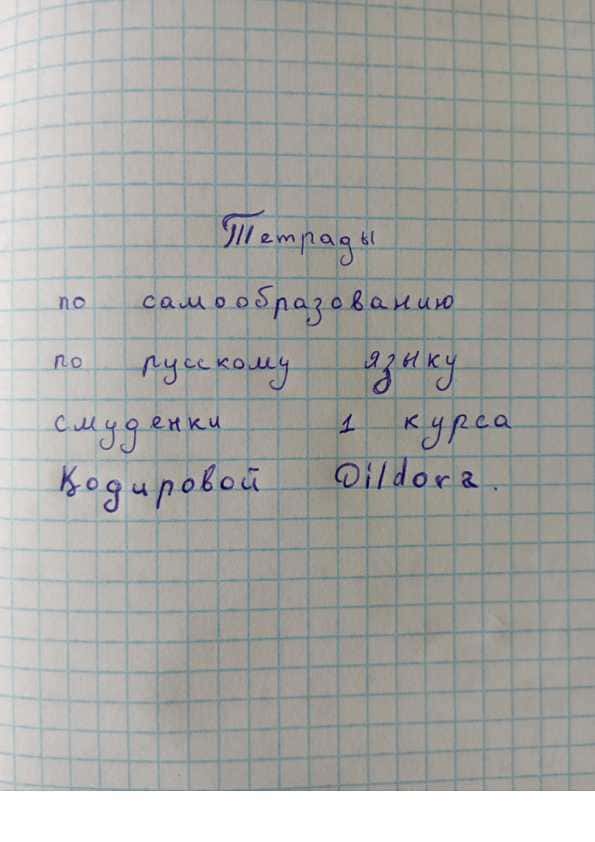 Тетрады
по самообразованию
по русскому языку
смуденки 1 курса
Кодировой Dildora.